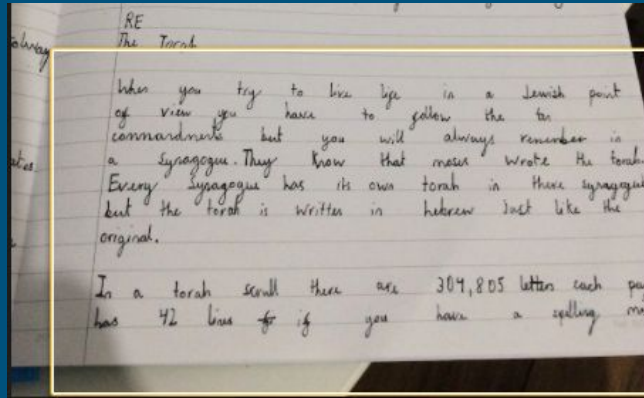 RE
The Torah
When you try to live life in a Jewish point
of view you have to follow the ten
commandments but you will always remember in
a Synagogue. They know that moses wrote the torah
Every Synagogue has its own torah in there synagogue
but the torah is written in hebrew Just like the
original.
In a torah scroll there are 304,805 letters each
has 42 lines if you have a spelling